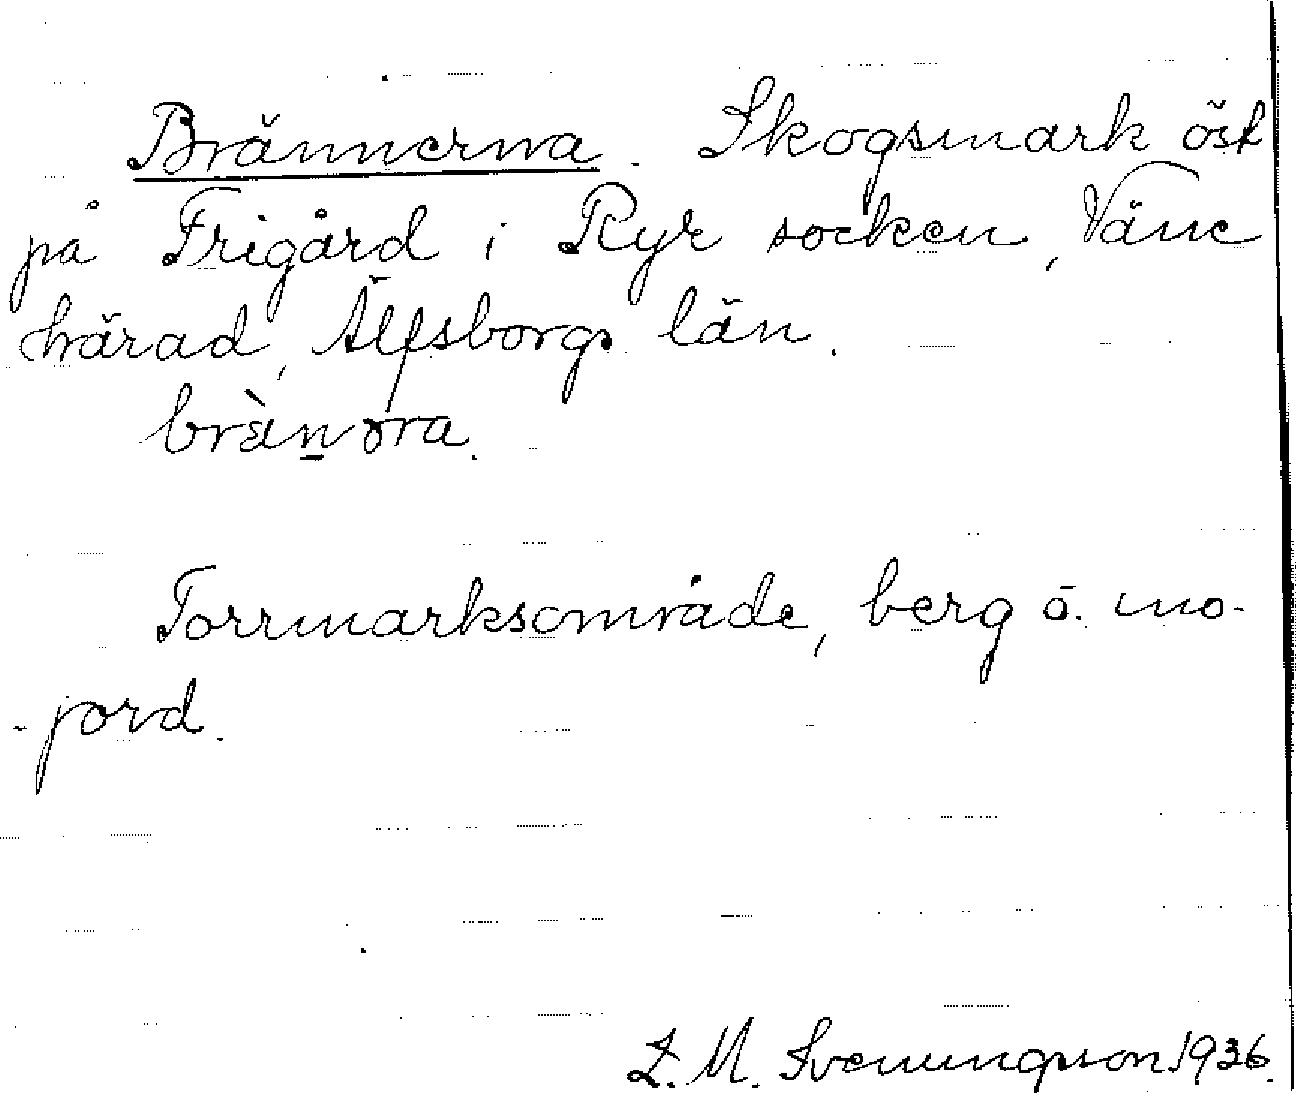 Brännerna. Skogsmark öst
på Frigård i Ryr socken, Väne
härad, Älfsborgs län.
brän̲əra.
Torrmarksområde, berg o. mo-
-jord.
Z. M. Svenungsson 1936.